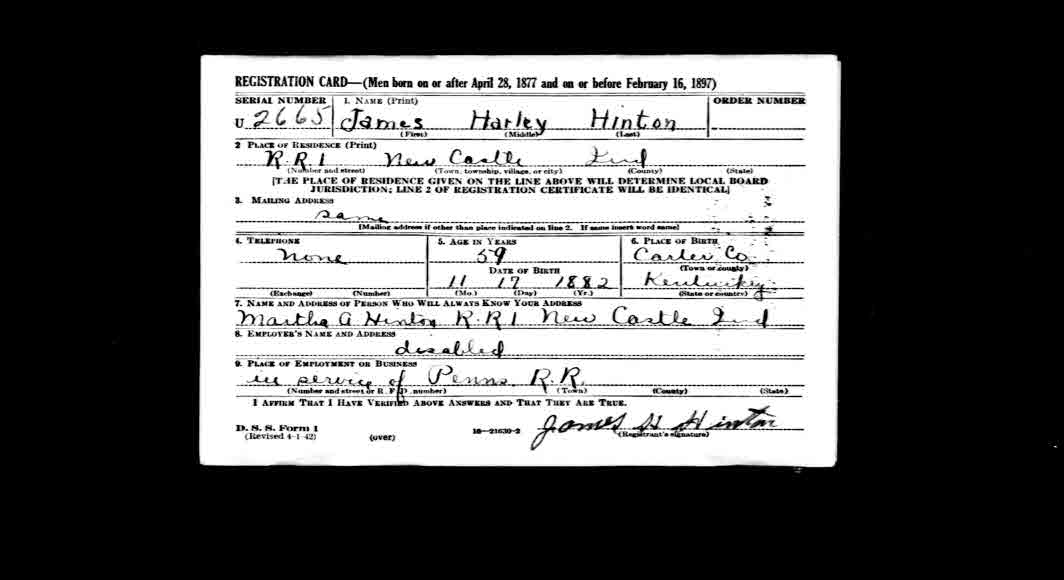 REGISTRATION CARD—(Men born on or after April 28, 1877 and on or before February 16, 1897)
SERIAL NUMBER 1. NAME (Print) ORDER NUMBER
U 2665 James Harley Hinton
(First) (Middle) (Last)
2 PLACE OF RESIDENCE (Print)
R.R.1 New Castle Ind
(Number and street) (Town, township, village, or city) (County) (State)
[THE PLACE OF RESIDENCE GIVEN ON THE LINE ABOVE WILL DETERMINE LOCAL BOARD
JURISDICTION; LINE 2 OF REGISTRATION CERTIFICATE WILL BE IDENTICAL]
3. MAILING ADDRESS
same
[Mailing address if other than place indicated on line 2. If same insert word same]
4. TELEPHONE 5. AGE IN YEARS 6. PLACE OF BIRTH
none 59 Carter Co.
DATE OF BIRTH (Town or county)
11 17 1882 Kentuckey
(Exchange) (Number) (Mo.) (Day) (Yr.) (State or country)
7. NAME AND ADDRESS OF PERSON WHO WILL ALWAYS KNOW YOUR ADDRESS
Martha A Hinton R.R 1 New Castle Ind
8. EMPLOYER'S NAME AND ADDRESS
disabled
9. PLACE OF EMPLOYMENT OR BUSINESS
in service of Penns R.R.
(Number and street or R. F. D. number) (Town) (County) (State)
I AFFIRM THAT I HAVE VERIFIED ABOVE ANSWERS AND THAT THEY ARE TRUE.
James H Hinton
D. S. S. Form 1 16—21630-2 (Registrant's signature)
(Revised 4-1-42) (over)